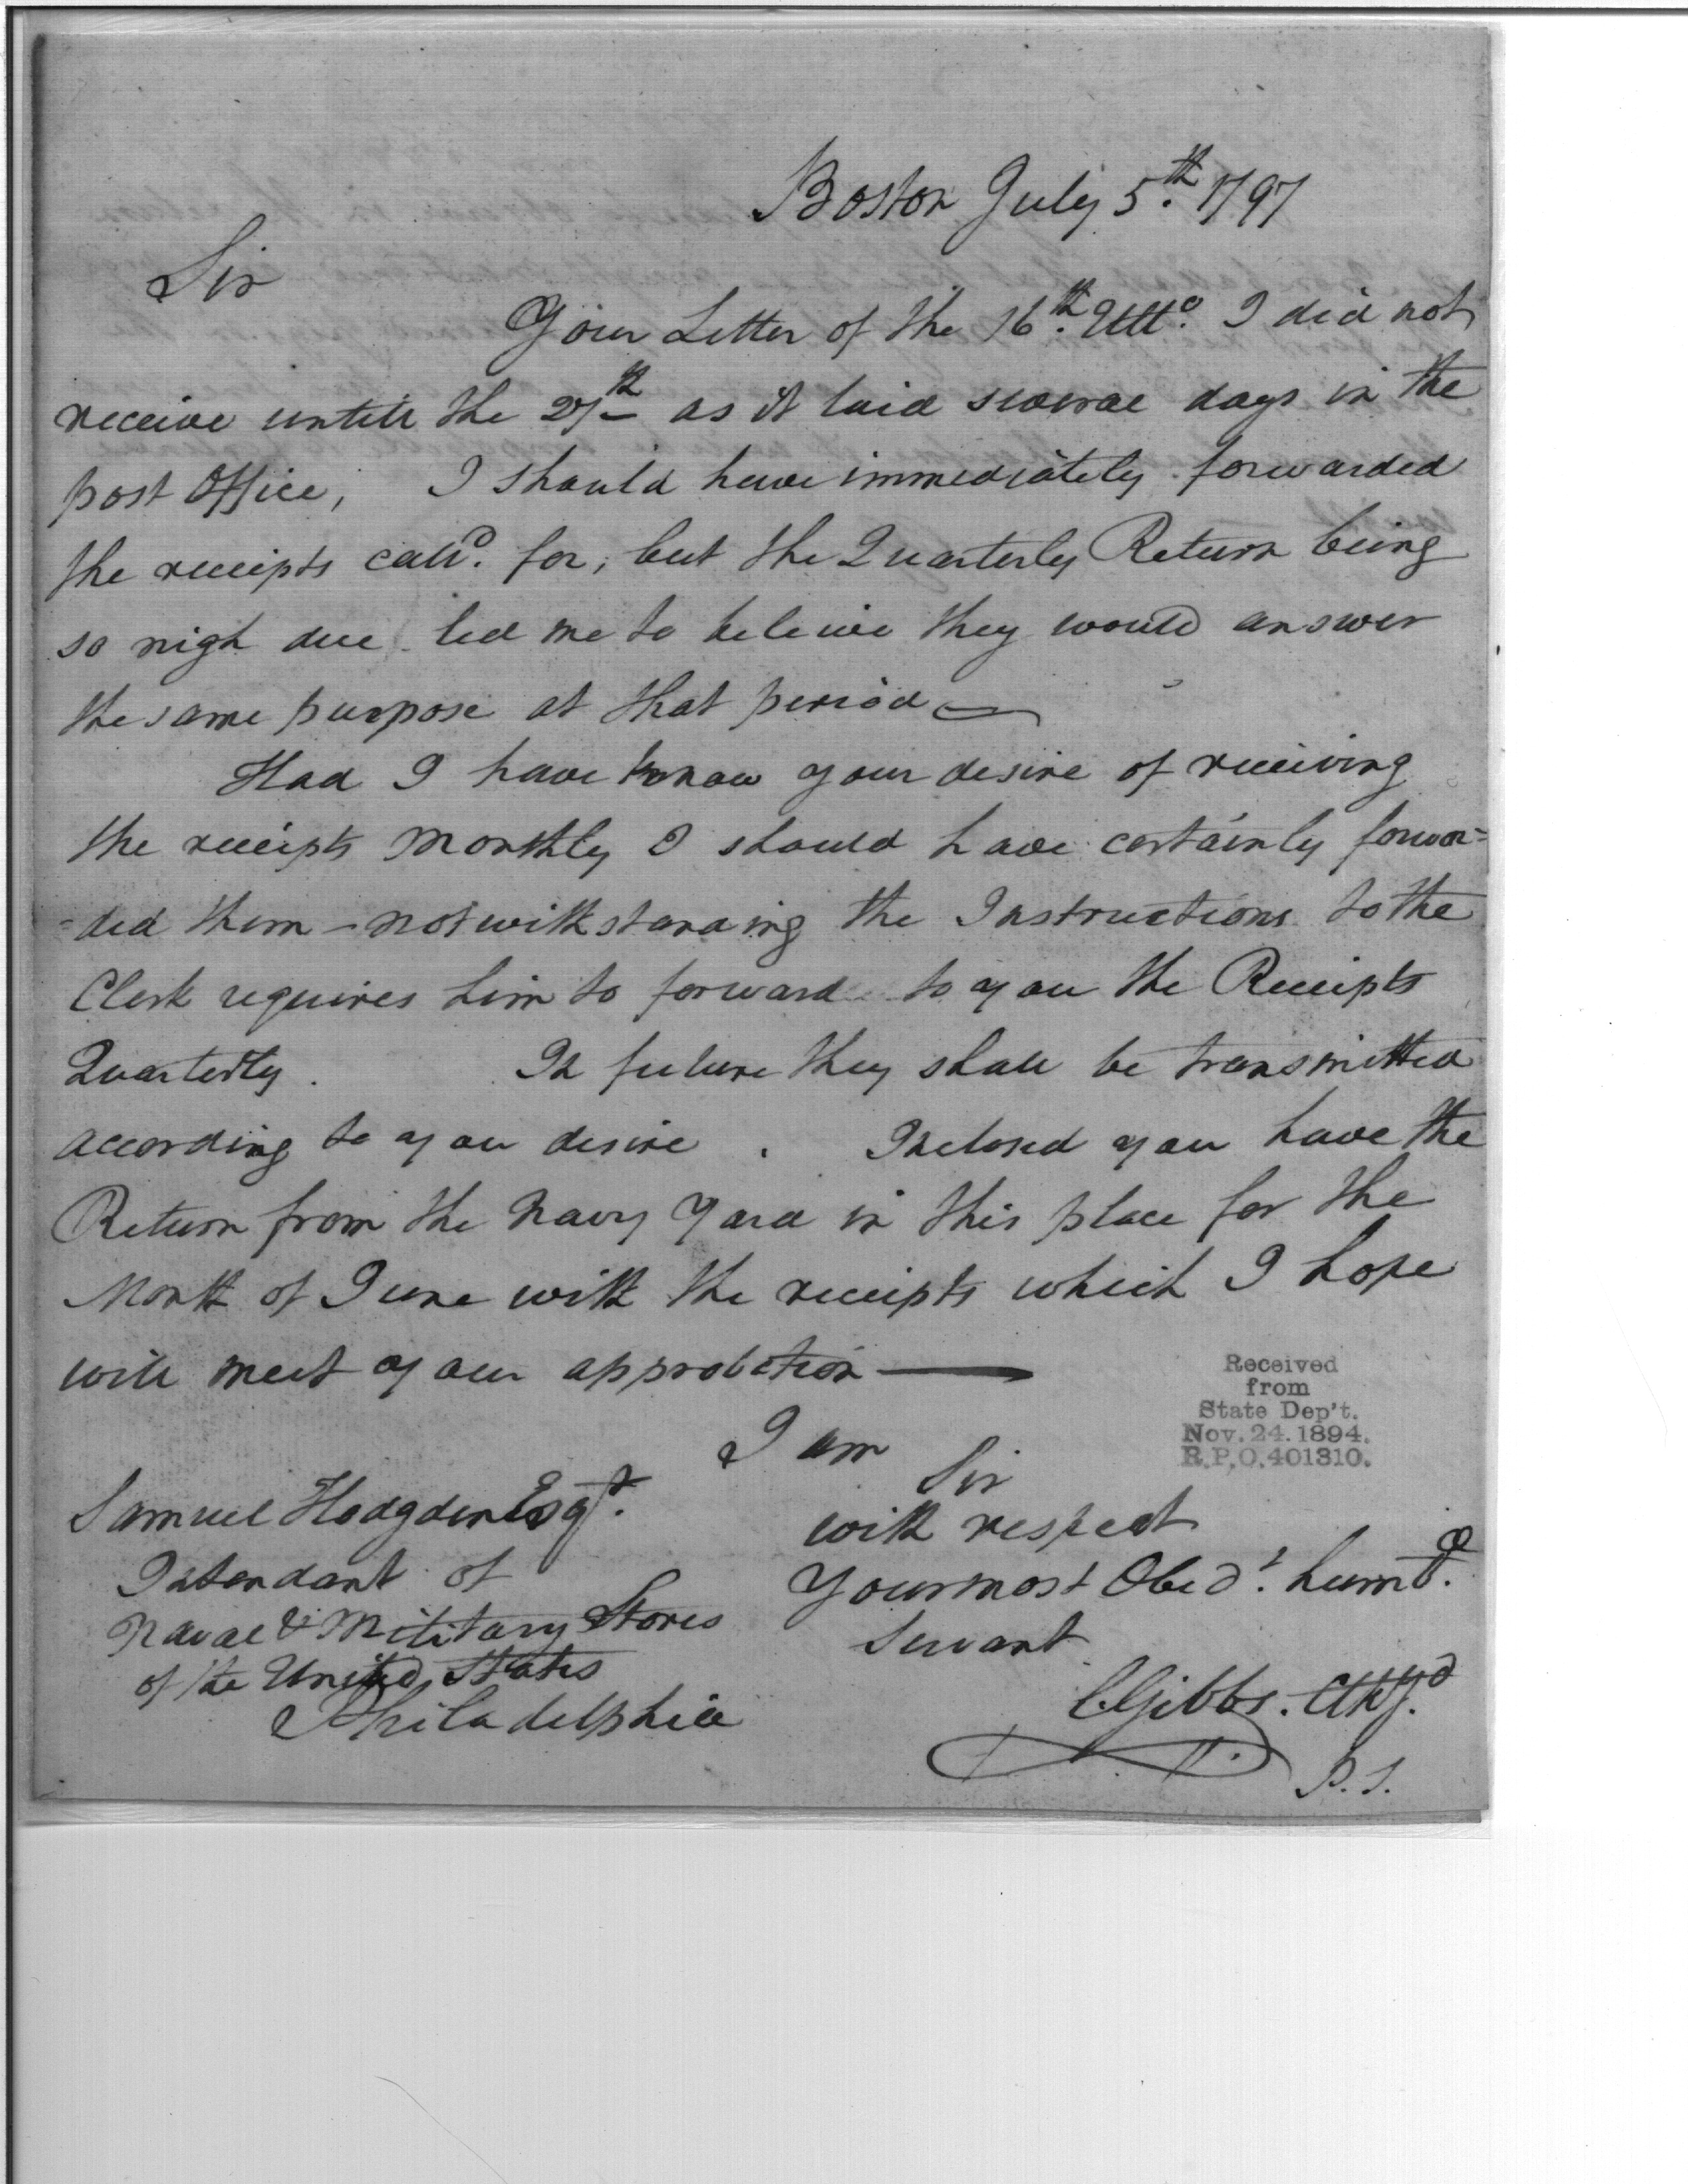 Boston July 5th. 1797
Sir
Your Letter of the 16th. Ulto. I did not
receive untill the 27th as it laid several days in the
post Office, I should have immediately forwarded
the receipts calld. for, but the Quarterly Return being
so nigh due led me to beleive they would answer
the same purpose at that period
Had I have know your desire of receiving
the receipts Monthly I should have certainly forwar=
=ded them - notwithstanding the Instructions to the
Clerk requires him to forward to you the Receipts
Quarterly. In future they shall be transmitted
according to your desire. Inclosed you have the
Return from the Navy Yard in this place for the
Month of June with the receipts which I hope
will meet your approbation
Received
from
State Dep't.
Nov. 24. 1894.
R.P.O. 401310.
I am
Sir
with respect
Your most Obedt. humbe.
Servant
C Gibbs.
P. S.
Samuel Hodgdon Esqr.
Intendant of
Naval & Military Stores
of the United States
Philadelphia